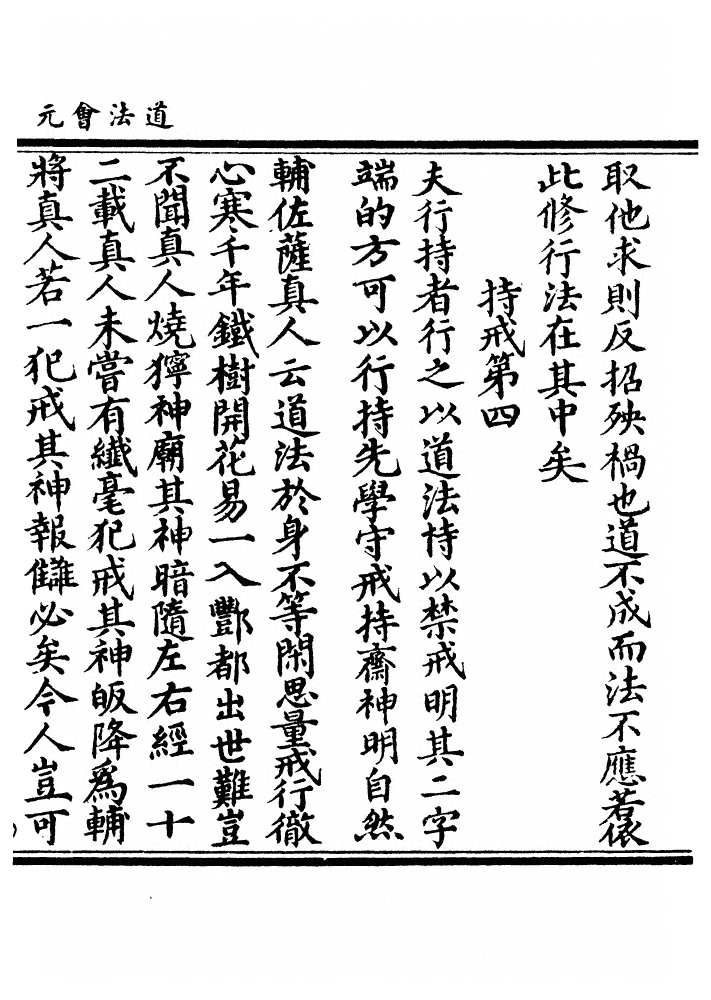 道法會元
取他求則反招殃禍也道不成而法不應若依
此修行法在其中矣
持戒第四
夫行持者行之以道法恃以禁戒明其二字
端的方可以行持先學守戒持齋神明自然
輔佐薩真人云道法於身不等閑思量戒行徹
心寒千年鐵樹開花易一入酆都出世難豈
不聞真人燒獰神廟其神暗隨左右經一十
二載真人未嘗有纖毫犯戒其神皈降爲輔
將真人若一犯戒其神報讎必矣今人豈可